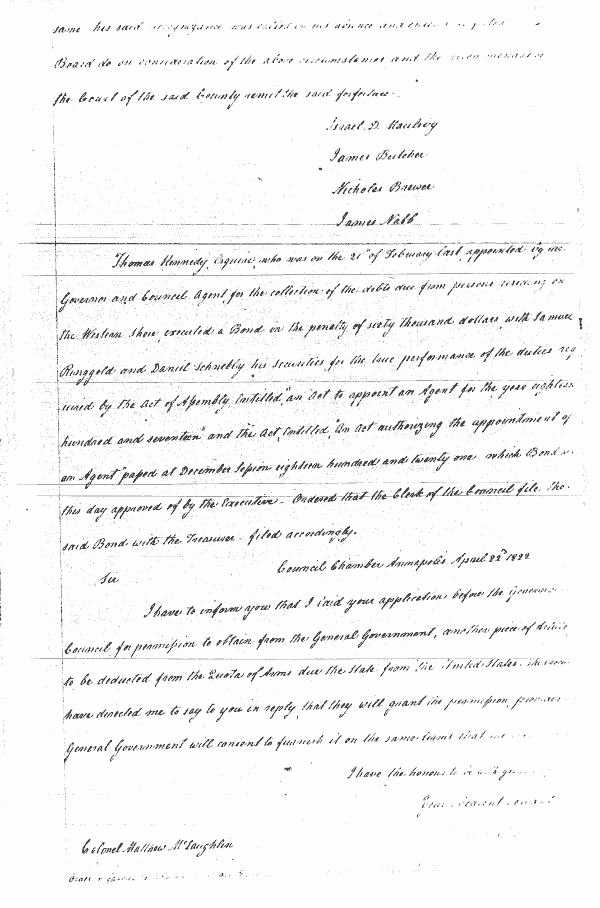 same his said recognizance was called in his absence and
Board do on consideration of the above circumstances and the
the Court of the said County remit the said forfeiture.
Israel D. Maulsby
James Butcher
Nicholas Brewer
James Nabb
Thomas Kennedy, Esquire, who was on the 21st of February last appointed by the
Governor and Council Agent for the collection of the debts due from persons residing on
the Western Shore executed a Bond in the penalty of sixty thousand dollars, with Samuel
Ringgold and Daniel Schnebly his securities for the true performance of the duties req
uired by the Act of Assembly, Entitled, "an Act to appoint an Agent for the year eighteen
hundred and seventeen" and the Act, Entitled, "An Act authorizing the appointment of
an Agent" passed at December Session eighteen hundred and twenty one which Bond
this day approved of by the Executive - Ordered that the Clerk of the Council file the
said Bond with the Treasurer - filed accordingly.
Council Chamber Annapolis April 22d 1822
Sir
I have to inform you that I laid your application before the Governor
Council for permission to obtain from the General Government, another piece of
to be deducted from the Quota of Arms due the State from the United States.
have directed me to say to you in reply, that they will grant the permission,
General Government will consent to furnish it on the same terms that
I have the honour to be with
Your obedient
Colonel Matthew McLaughlin